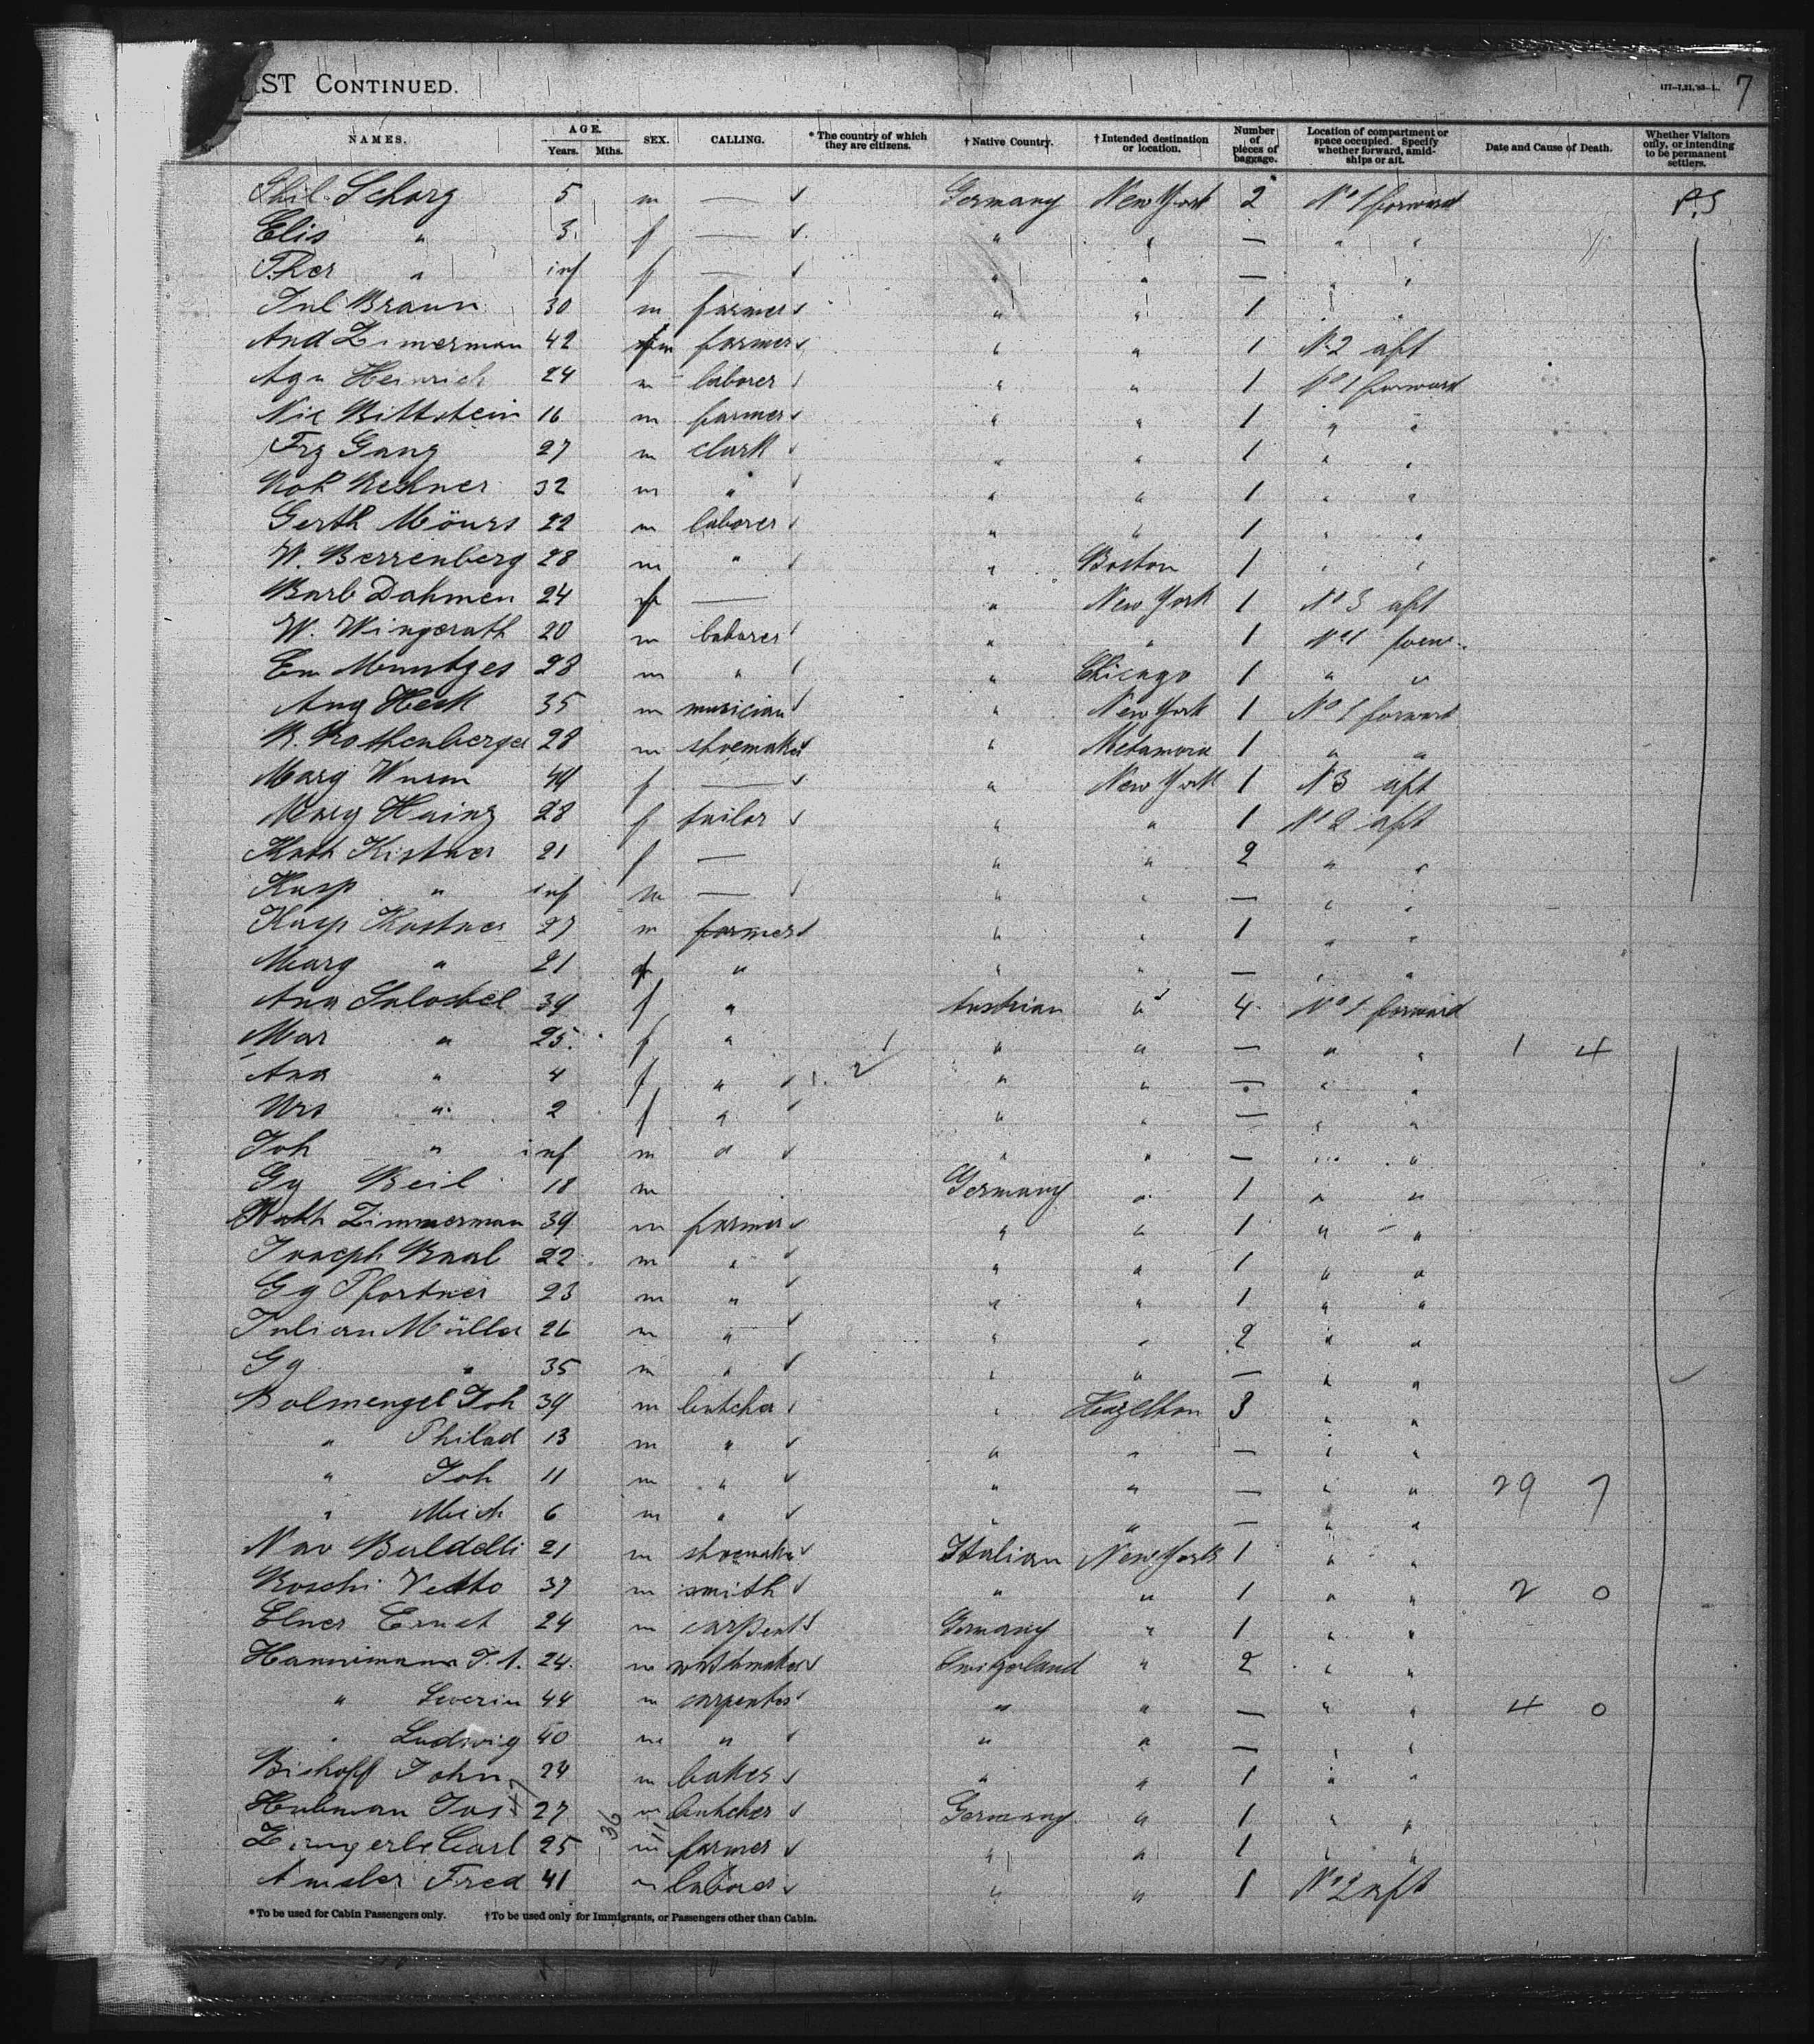 LIST CONTINUED. 177-7,21,'93-L. 7
NAMES. AGE. Years. Mths. SEX. CALLING. * The country of which they are citizens. † Native Country. † Intended destination or location. Number of pieces of baggage. Location of compartment or space occupied. Specify whether forward, amid-ships or aft. Date and Cause of Death. Whether Visitors only, or intending to be permanent settlers.
Phil. Schorg 5 m — ✓ Germany New York 2 No 1 forward P.S
Elis " 3 f — ✓ " " — " "
Ther " inf f — ✓ " " — " "
Jul Braun 30 m farmer ✓ " " 1 " "
And Zimerman 42 m farmer ✓ " " 1 No 2 aft
Agn Heinrich 24 m laborer ✓ " " 1 No 1 forward
Nic Bittstein 16 m farmer ✓ " " 1 " "
Frz Ganz 27 m clark ✓ " " 1 " "
Rob 32 m " ✓ " " 1 " "
Gerth Mönrs 22 m laborer ✓ " " 1 " "
W. Berrenberg 28 m " ✓ " Boston 1 " "
Barb Dahmen 24 f — " New York 1 No 3 aft
W. Wingerath 20 m laborer ✓ " " 1 No 1 forw.
Em Muntges 28 m " ✓ " Chicago 1 " "
Aug Heck 35 m musician ✓ " New York 1 No 1 forward
R. Rothenberger 28 m shoemaker ✓ " Metamora 1 " "
Marg Wurm 44 f — ✓ " New York 1 No 3 aft
Marg Hainz 28 f tailor ✓ " " 1 No 2 aft
Kath Kistner 21 f — " " 2 " "
Kasp " inf m — ✓ " " — " "
Kasp Kostner 27 m farmer ✓ " " 1 " "
Marg " 21 f " " " — " "
Ana 39 f " Austrian " 4 No 1 forward
Mar " 25 f " 1 " " — " " 1 4
Ana " 4 f " ✓ 1. 2 " " — " "
Urs " 2 f " ✓ " " — " "
Joh " inf m " ✓ " " — " "
Gg Beil 18 m Germany " 1 " "
Zimmerman 39 m farmer ✓ " " 1 " "
Joseph Baal 22 m " ✓ " " 1 " "
Gg Pfortner 23 m " ✓ " " 1 " "
Julian Müller 26 m " ✓ " " 2 " "
Gg " 35 m " ✓ " " — " "
Bolmengel Joh 39 m butcher ✓ " Hazelton 3 " "
" Philad 13 m " ✓ " " — " "
" Joh 11 m " ✓ " " — " " 29 7
" Mich 6 m " ✓ " " — " "
Nav Baldelli 21 m shoemaker ✓ Italian New York 1 " "
Boschi Vetto 37 m smith ✓ " " 1 " " 2 0
Elner Ernst 24 m carpent ✓ Germany " 1 " "
Hannimann J. A. 24 m watchmaker ✓ Switzerland " 2 " "
" Severin 44 m carpenter ✓ " " — " " 4 0
" Ludwig 40 m " ✓ " " — " "
Bishoff John 24 m baker ✓ " " 1 " "
Hubman Jos 27 m butcher ✓ Germany " 1 " "
Zingerle Carl 25 36 m 11 farmer ✓ " " 1 " "
Amsler Fred 41 m laborer ✓ " " 1 No 2 aft
* To be used for Cabin Passengers only. † To be used only for Immigrants, or Passengers other than Cabin.